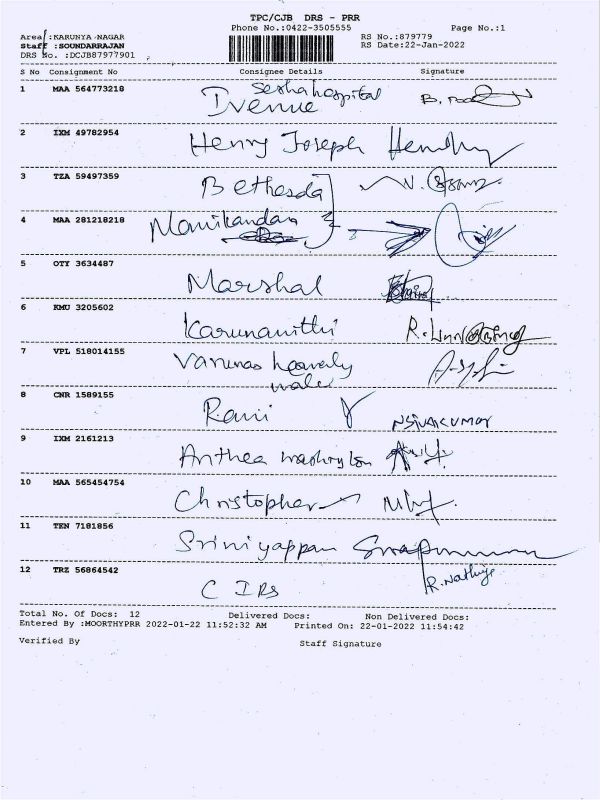 TPC/CJB DRS - PRR
Phone No.:0422-3505555 Page No.:1
Area :KARUNYA-NAGAR RS No.:879779
Staff :SOUNDARRAJAN RS Date:22-Jan-2022
DRS No. :DCJB87977901
S No Consignment No Consignee Details Signature
1 MAA 564773218 Seshahospital B.
Ivenue
2 IXM 49782954 Henry Joseph
3 TZA 59497359 Bethesda
4 MAA 281218218 Manikandan
5 OTY 3634487 Marshal
6 KMU 3205602 Karunanithi R.
7 VPL 518014155
8 CNR 1589155 Rani NSIVAKUMAR
9 IXM 2161213 Anthea
10 MAA 565454754 Christopher
11 TEN 7181856 Sriniyappan
12 TRZ 56864542 C IRS R. Nathiya
Total No. Of Docs: 12 Delivered Docs: Non Delivered Docs:
Entered By :MOORTHYPRR 2022-01-22 11:52:32 AM Printed On: 22-01-2022 11:54:42
Verified By Staff Signature